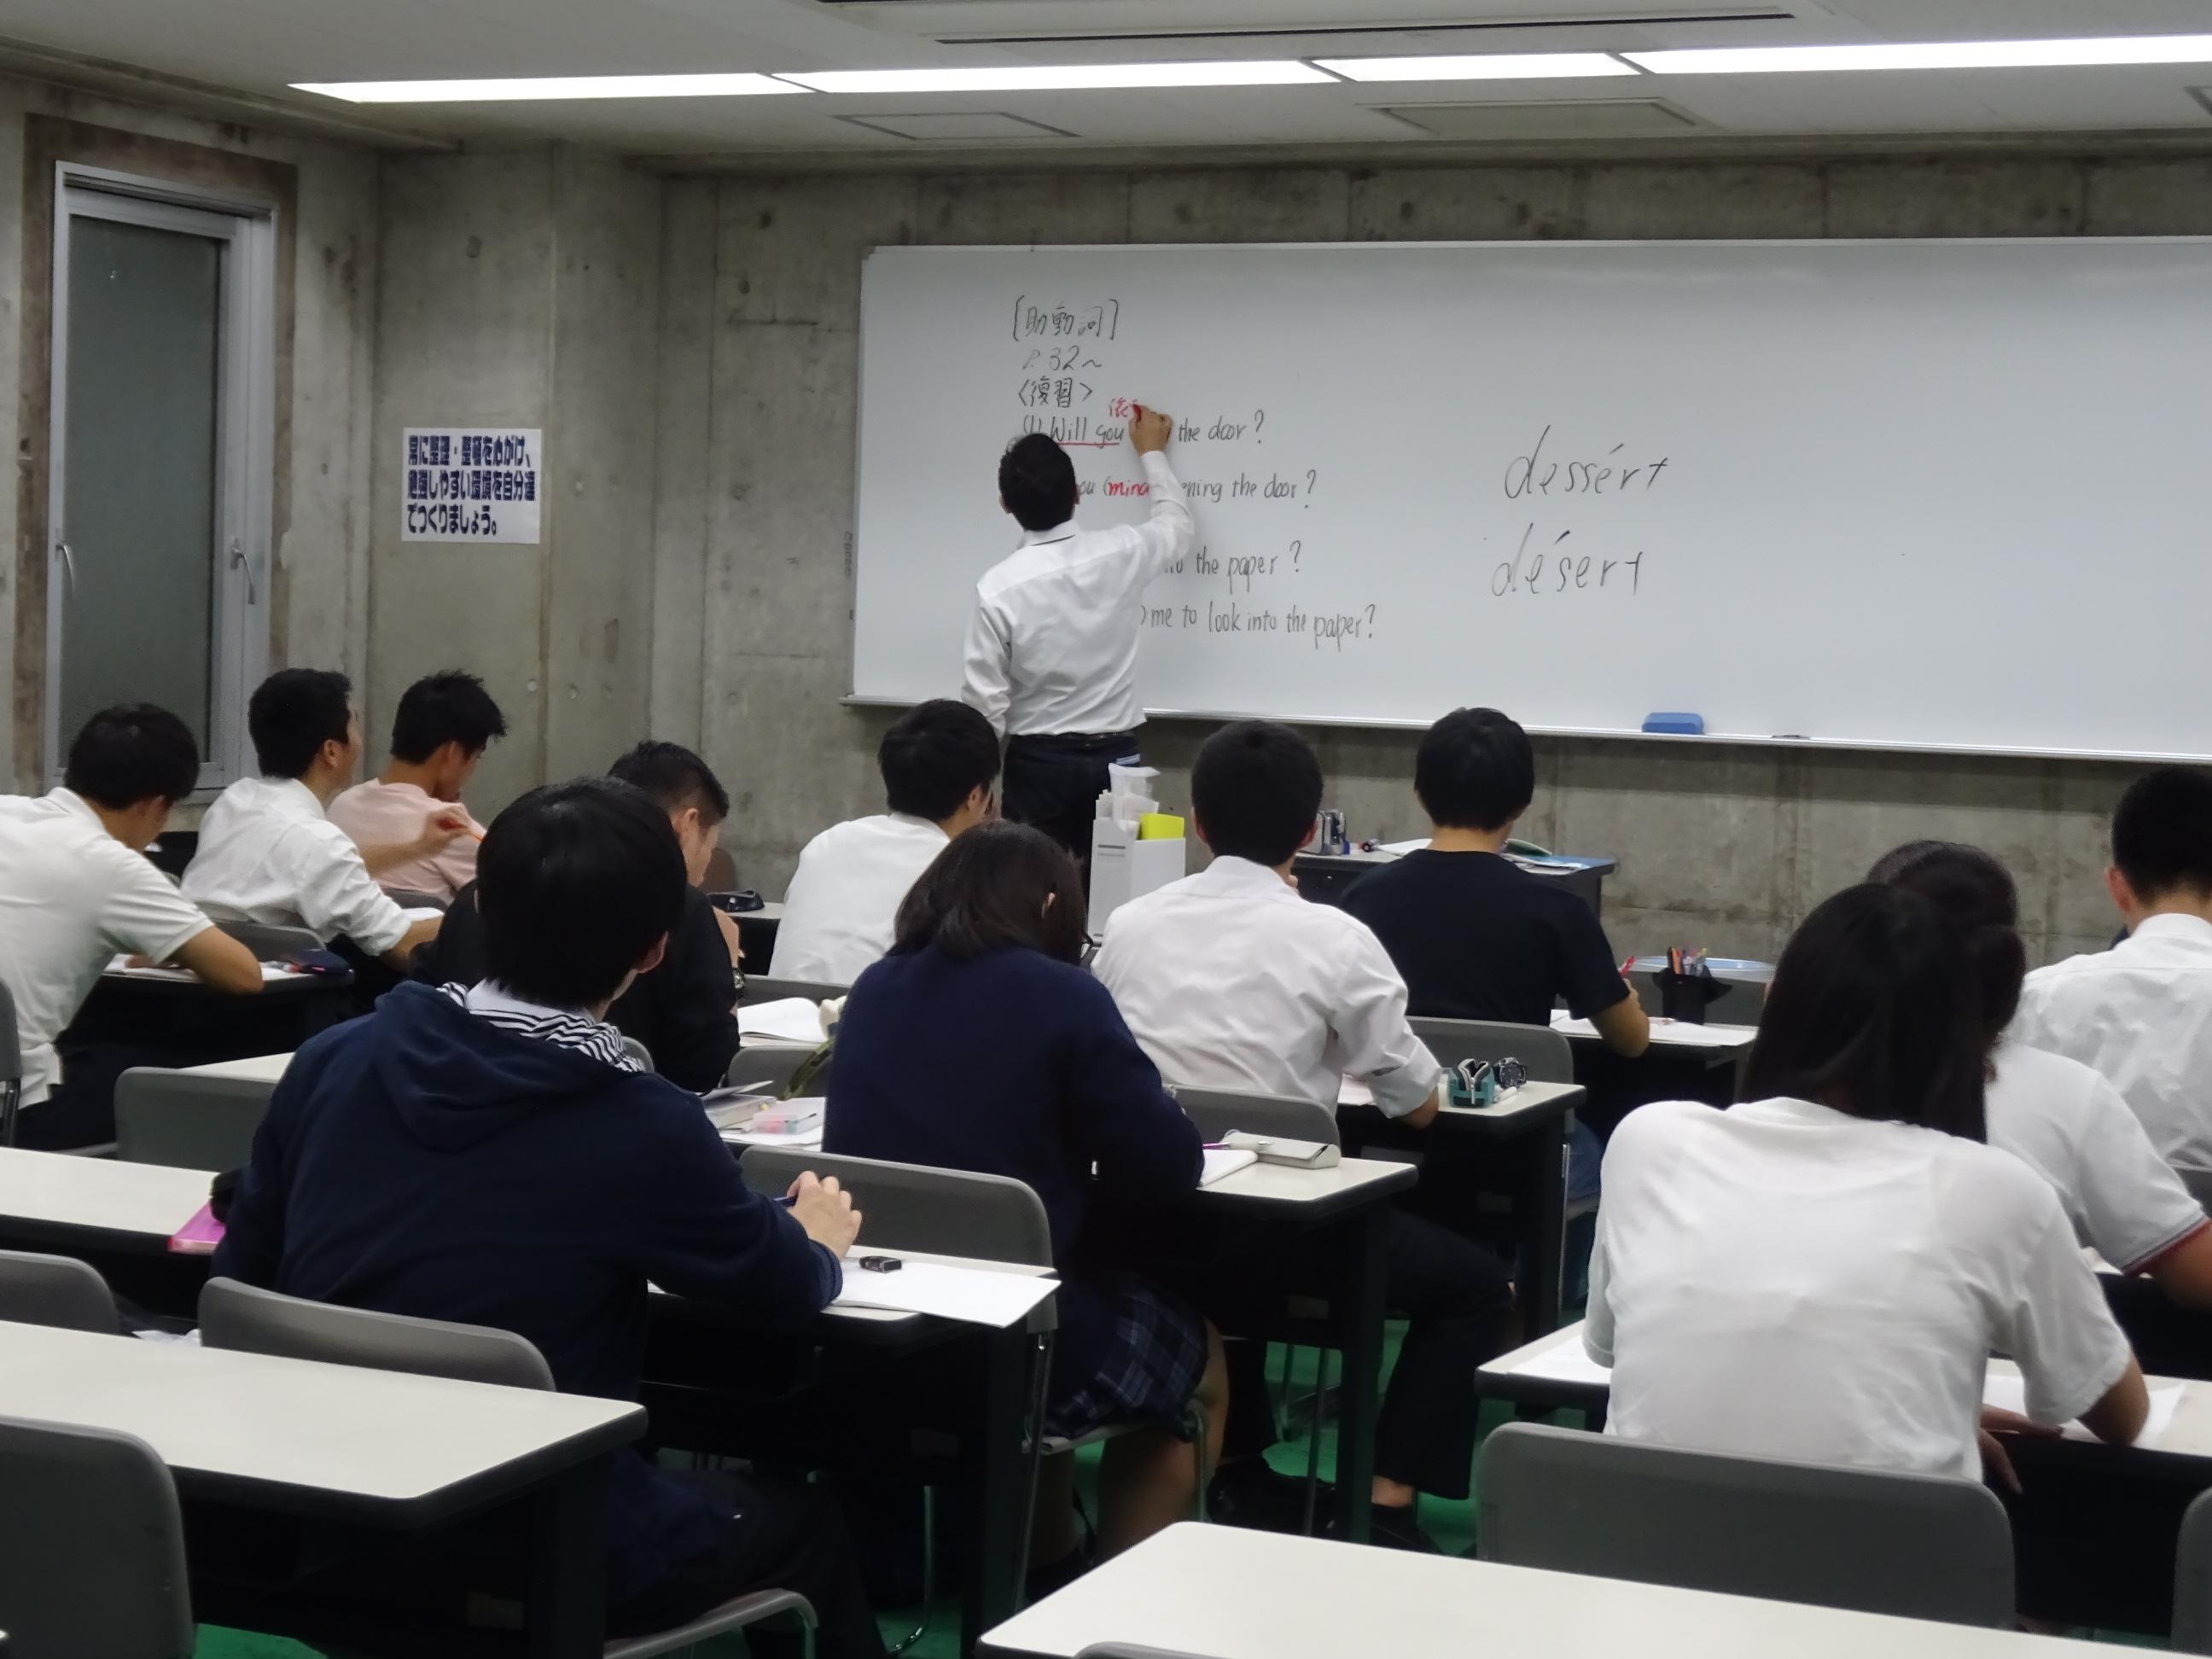 常に整理・整頓を心がけ、
勉強しやすい環境を自分達
でつくりましょう。
[助動詞]
P.32～
<復習>
(1) Will you the door?
(mind the door?
the paper?
) me to look into the paper?
dessért
désert